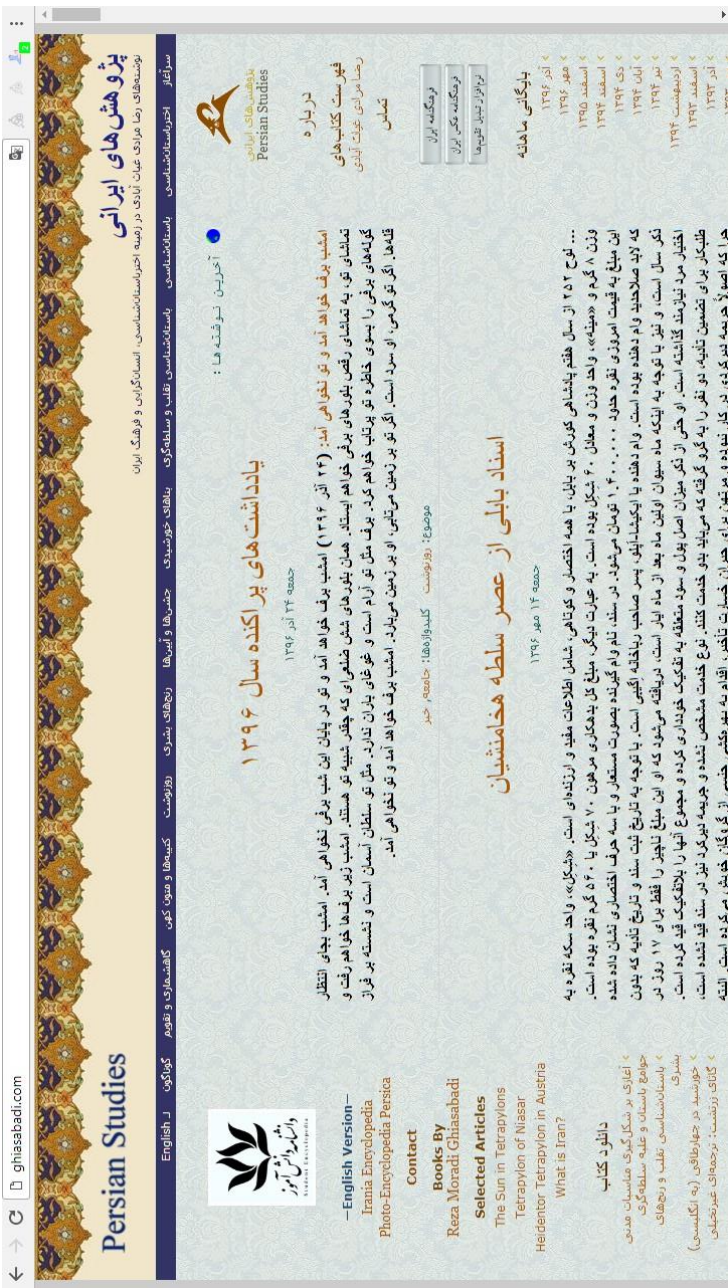 ghiasabadi.com
2
Persian Studies
پژوهش‌های ایرانی
نوشته‌های رضا مرادی غیاث آبادی در زمینه اخترباستان‌شناسی، انسان‌گرایی و فرهنگ ایران
سرآغاز
اخترباستان‌شناسی
باستان‌شناسی
باستان‌شناسی تقلب و سلطه‌گری
بناهای خورشیدی
جشن‌ها و آیین‌ها
رنج‌های بشری
روزنوشت
کتیبه‌ها و متون کهن
گاهشماری و تقویم
گوناگون
English
پژوهش‌های ایرانی
Persian Studies
درباره
فهرست کتاب‌های
رضا مرادی غیاث آبادی
تماس
فرهنگنامه ایران
فرهنگنامه عکس ایران
نرم‌افزار تبدیل تقویم‌ها
بایگانی ماهانه
آذر ۱۳۹۶
مهر ۱۳۹۶
اسفند ۱۳۹۵
اسفند ۱۳۹۴
دی ۱۳۹۴
آبان ۱۳۹۴
تیر ۱۳۹۴
اردیبهشت ۱۳۹۴
اسفند ۱۳۹۳
آذر ۱۳۹۳
آخرین نوشته ها :
یادداشت‌های پراکنده سال ۱۳۹۶
جمعه ۲۴ آذر ۱۳۹۶
امشب برف خواهد آمد و تو نخواهی آمد: (۲۴ آذر ۱۳۹۶) امشب برف خواهد آمد و تو در پایان این شب برفی نخواهی آمد. امشب بجای انتظار
تماشای تو، به تماشای رقص بلورهای برفی خواهم ایستاد. همان بلورهای شش ضلعی‌ای که چقدر شبیه تو هستند. امشب زیر برف‌ها خواهم رفت و
گوله‌های برفی را بسوی خاطره تو پرتاب خواهم کرد. برف مثل تو آرام است و غوغای باران ندارد. مثل تو سلطان آسمان است و نشسته بر فراز
قله‌ها. اگر تو گرمی، او سرد است. اگر تو بر زمین می‌تابی، او بر زمین می‌بارد. امشب برف خواهد آمد و تو نخواهی آمد.
موضوع: روزنوشت کلیدواژه‌ها: جامعه, خبر
اسناد بابلی از عصر سلطه هخامنشیان
جمعه ۱۴ مهر ۱۳۹۶
... لوح ۲۵۲ از سال هفتم پادشاهی کورش بر بابل، با همه اختصار و کوتاهی، شامل اطلاعات مفید و ارزنده‌ای است. «شِکِل»، واحد سکه نقره به
وزن ۸ گرم و «مینه»، واحد وزن و معادل ۶۰ شکل بوده است. به عبارت دیگر، مبلغ کل بدهکاری مرهون ۷۰ شکل یا ۵۶۰ گرم نقره بوده است.
این مبلغ به قیمت امروزی نقره حدود ۱،۴۰۰،۰۰۰ تومان می‌شود. در سند، نام وام گیرنده بصورت مستعار و با سه حرف اختصاری نشان داده شده
که لابد صلاحدید وام دهنده بوده است. وام دهنده یا ایکیشا-آپلو، پسر صاحب رباخانه اگیبی است. با توجه به تاریخ ثبت سند و تاریخ تادیه که بدون
ذکر سال است، و نیز با توجه به اینکه ماه سیوان اولین ماه بعد از ماه ایار است، دریافته می‌شود که او این مبلغ ناچیز را فقط برای ۱۷ روز در
اختیار مرد نیازمند گذاشته است. او حتی از ذکر میزان اصل پول و سود متعلقه به تفکیک خودداری کرده و مجموع آنها را بلاتفکیک قید کرده است.
طلبکار برای تضمین تادیه، دو نفر را به گرو گرفته که می‌باید بدو خدمت کنند. نوع خدمت مشخص نشده و جریمه دیرکرد نیز در سند قید نشده است،
–English Version–
Irania Encyclopedia
Photo-Encyclopedia Persica
Contact
Books By
Reza Moradi Ghiasabadi
Selected Articles
The Sun in Tetrapylons
Tetrapylon of Niasar
Heidentor Tetrapylon in Austria
What is Iran?
دانلود کتاب
آغازی بر شکل‌گیری مناسبات مدنی
جوامع باستان و غلبه سلطه‌گری
باستان‌شناسی تقلب و رنج‌های
بشری
خورشید در چهارطاقی (به انگلیسی)
گاتای زرتشت: ترجمه‌ای غیرتخیلی